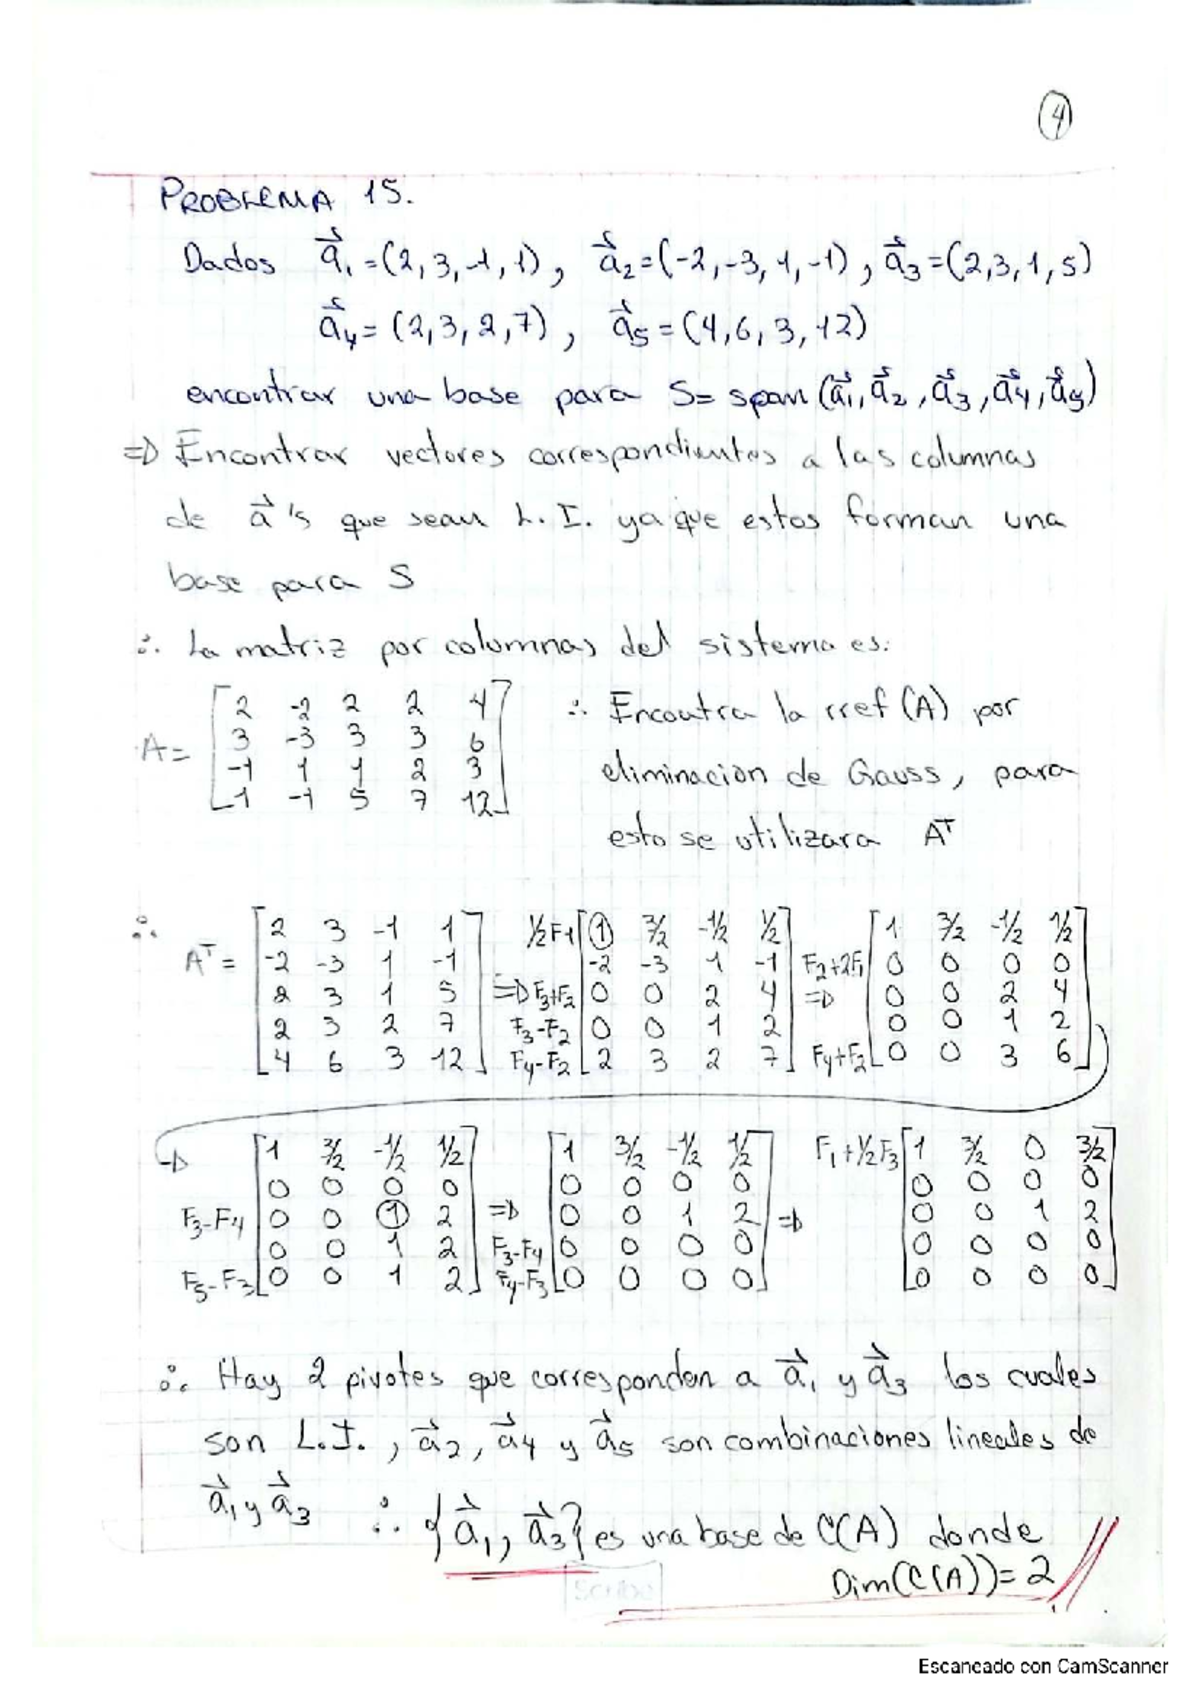 4
PROBLEMA 15.
Dados a⃗₁=(2,3,-1,1), a⃗₂=(-2,-3,1,-1), a⃗₃=(2,3,1,5)
a⃗₄=(2,3,2,7), a⃗₅=(4,6,3,12)
encontrar una base para S= span (a⃗₁,a⃗₂,a⃗₃,a⃗₄,a⃗₅)
=D Encontrar vectores correspondientes a las columnas
de a⃗'s que sean L.I. ya que estos forman una
base para S
∴ La matriz por columnas del sistema es:
A= [2 -2 2 2 4
3 -3 3 3 6
-1 1 1 2 3
1 -1 5 7 12]
∴ Encoutra la rref (A) por
eliminacion de Gauss, para
esto se utilizara Aᵀ
∴ Aᵀ= [2 3 -1 1
-2 -3 1 -1
2 3 1 5
2 3 2 7
4 6 3 12]
½F1 [1 3/2 -1/2 1/2
-2 -3 1 -1
=D F3+F2 0 0 2 4
F3-F2 0 0 1 2
F4-F2 2 3 2 7]
[1 3/2 -1/2 1/2
F2+2F1 0 0 0 0
=D 0 0 2 4
0 0 1 2
F4+F2 0 0 3 6]
-D [1 3/2 -1/2 1/2
0 0 0 0
F3-F4 0 0 1 2
0 0 1 2
F5-F3 0 0 1 2]
[1 3/2 -1/2 1/2
0 0 0 0
=D 0 0 1 2
F3-F4 0 0 0 0
F4-F3 0 0 0 0]
F1+½F3 [1 3/2 0 3/2
0 0 0 0
=D 0 0 1 2
0 0 0 0
0 0 0 0]
∴ Hay 2 pivotes que corresponden a a⃗₁ y a⃗₃ los cuales
son L.I., a⃗₂, a⃗₄ y a⃗₅ son combinaciones lineales de
a⃗₁ y a⃗₃ ∴ {a⃗₁, a⃗₃} es una base de C(A) donde
Dim(C(A))=2
Scribe
Escaneado con CamScanner